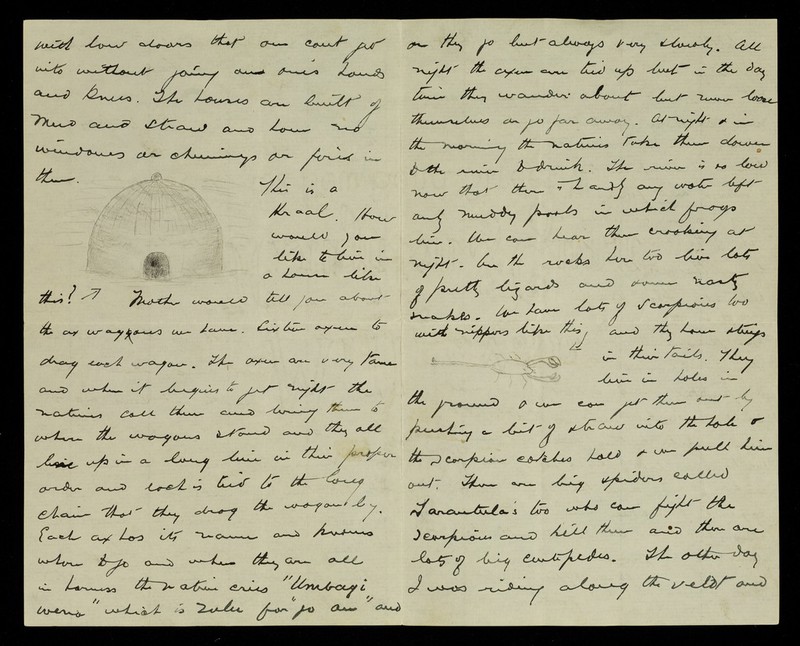 with low doors that one cant get
into without going on one's hands
and knees. The houses are built of
Mud and straw and have no
windows or chimneys or fires in
them.
This is a
Kraal. How
would you
like to live in
a house like
this? Mother would tell you about
the ox waggons we have. Sixteen oxen to
drag each wagon. The oxen are very tame
and when it begins to get night the
natives call them and bring them to
where the wagons stand and they all
line up in a long line in their proper
order and each is tied to the long
chain that they drag the wagon by.
Each ox has its name and knows
where to go and when they are all
in harness the native cries "Umbagi
wena" which is Zulu for "go on" and
on they go but always very slowly. All
night the oxen are tied up but in the day
time they wander about but never loose
themselves or go far away. At night & in
the morning the natives take them down
to the river to drink. The river is so low
now that there is hardly any water left
only muddy pools in which frogs
live. We can hear them croaking at
night. On the rocks here too live lots
of pretty lizards and some nasty
snakes. We have lots of scorpions too
with nippers like this, and they have stings
in their tails. They
live in holes in
the ground & we can get them out by
pushing a bit of straw into the hole &
the scorpion catches hold & we pull him
out. There are big spiders called
Tarantula's too who can fight the
scorpions and kill them and there are
lots of big centipedes. The other day
I was riding along the veldt and